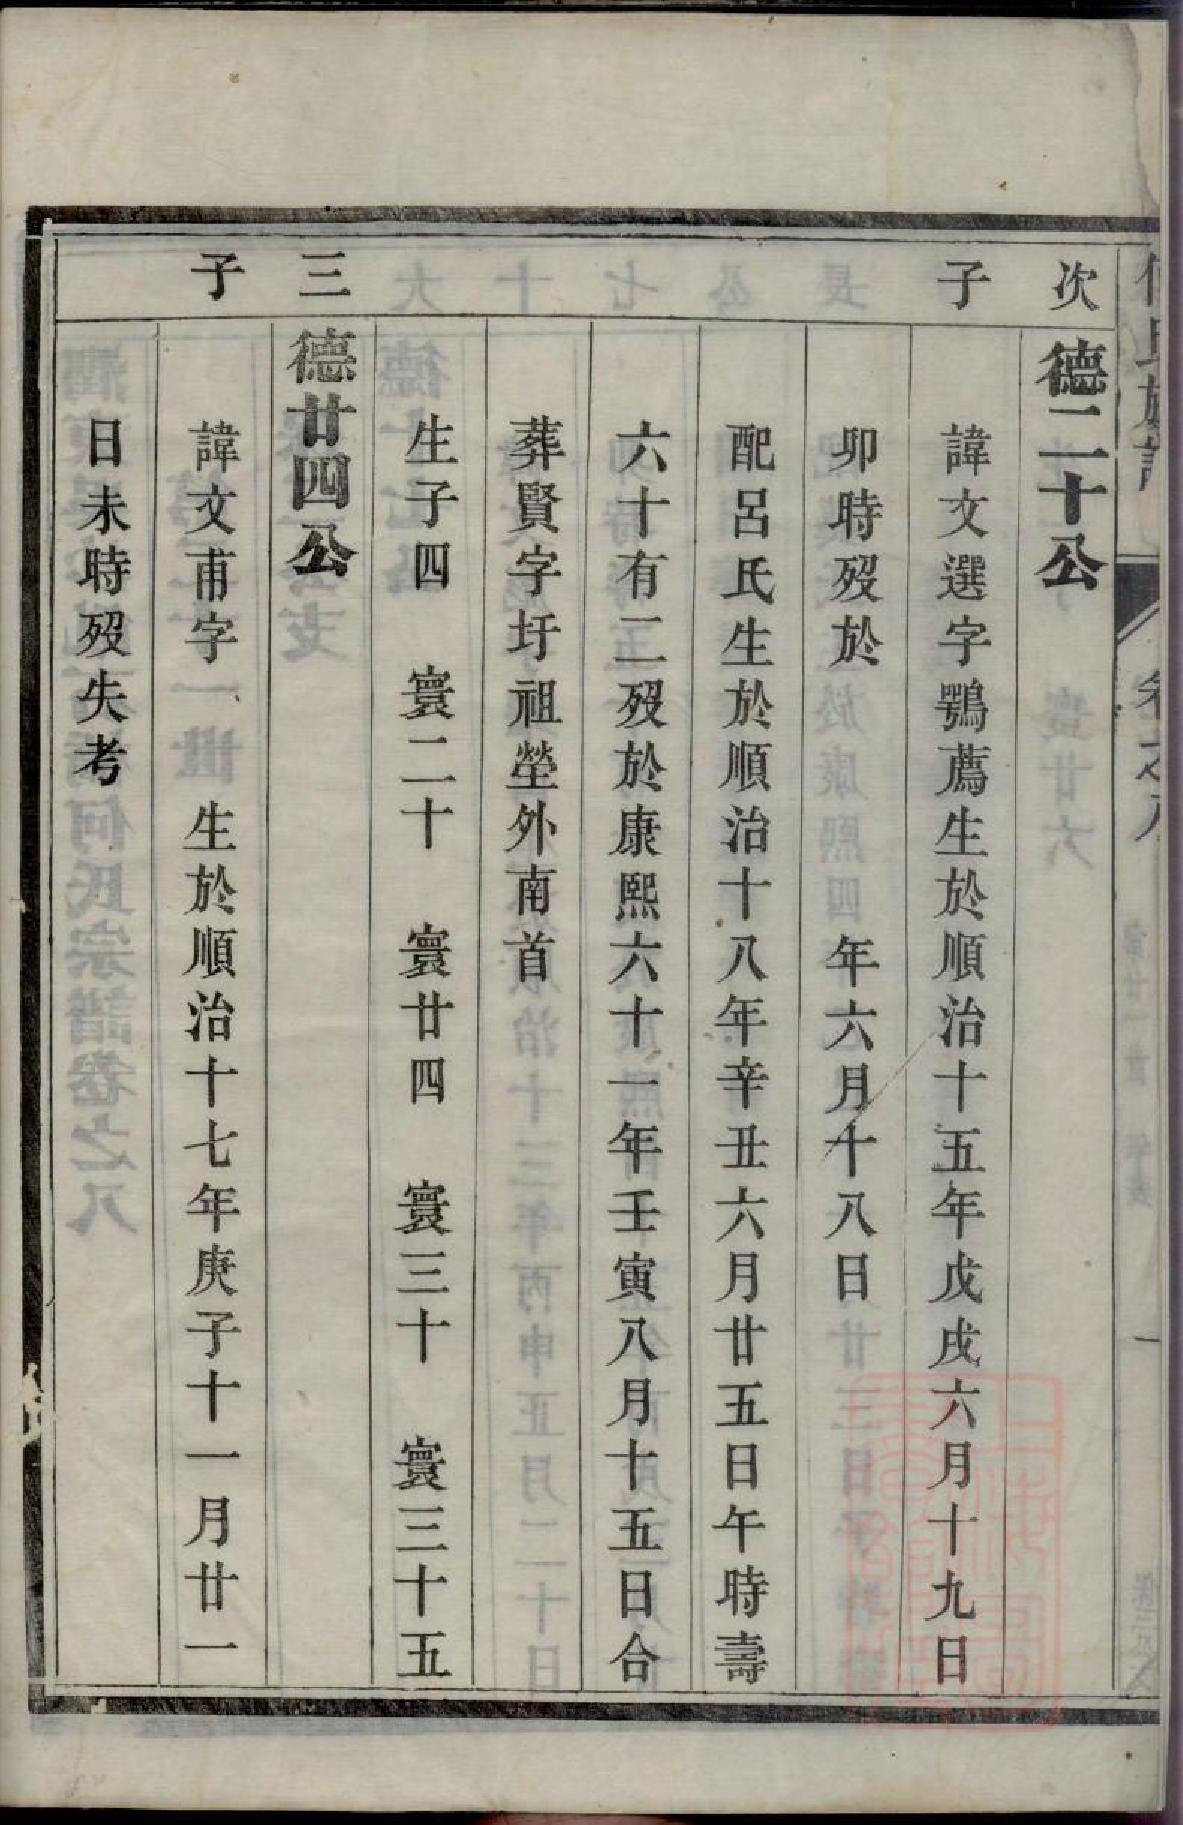 氏族譜
卷之八
一
次
德二十公
子
諱文選字鶚薦生於順治十五年戊戌六月十九日
卯時歿於 年六月十八日
配呂氏生於順治十八年辛丑六月廿五日午時壽
六十有二歿於康熙六十一年壬寅八月十五日合
葬賢字圩祖塋外南首
生子四 寰二十 寰廿四 寰三十 寰三十五
三
德廿四公
子
諱文甫字 生於順治十七年庚子十一月廿一
日未時歿失考